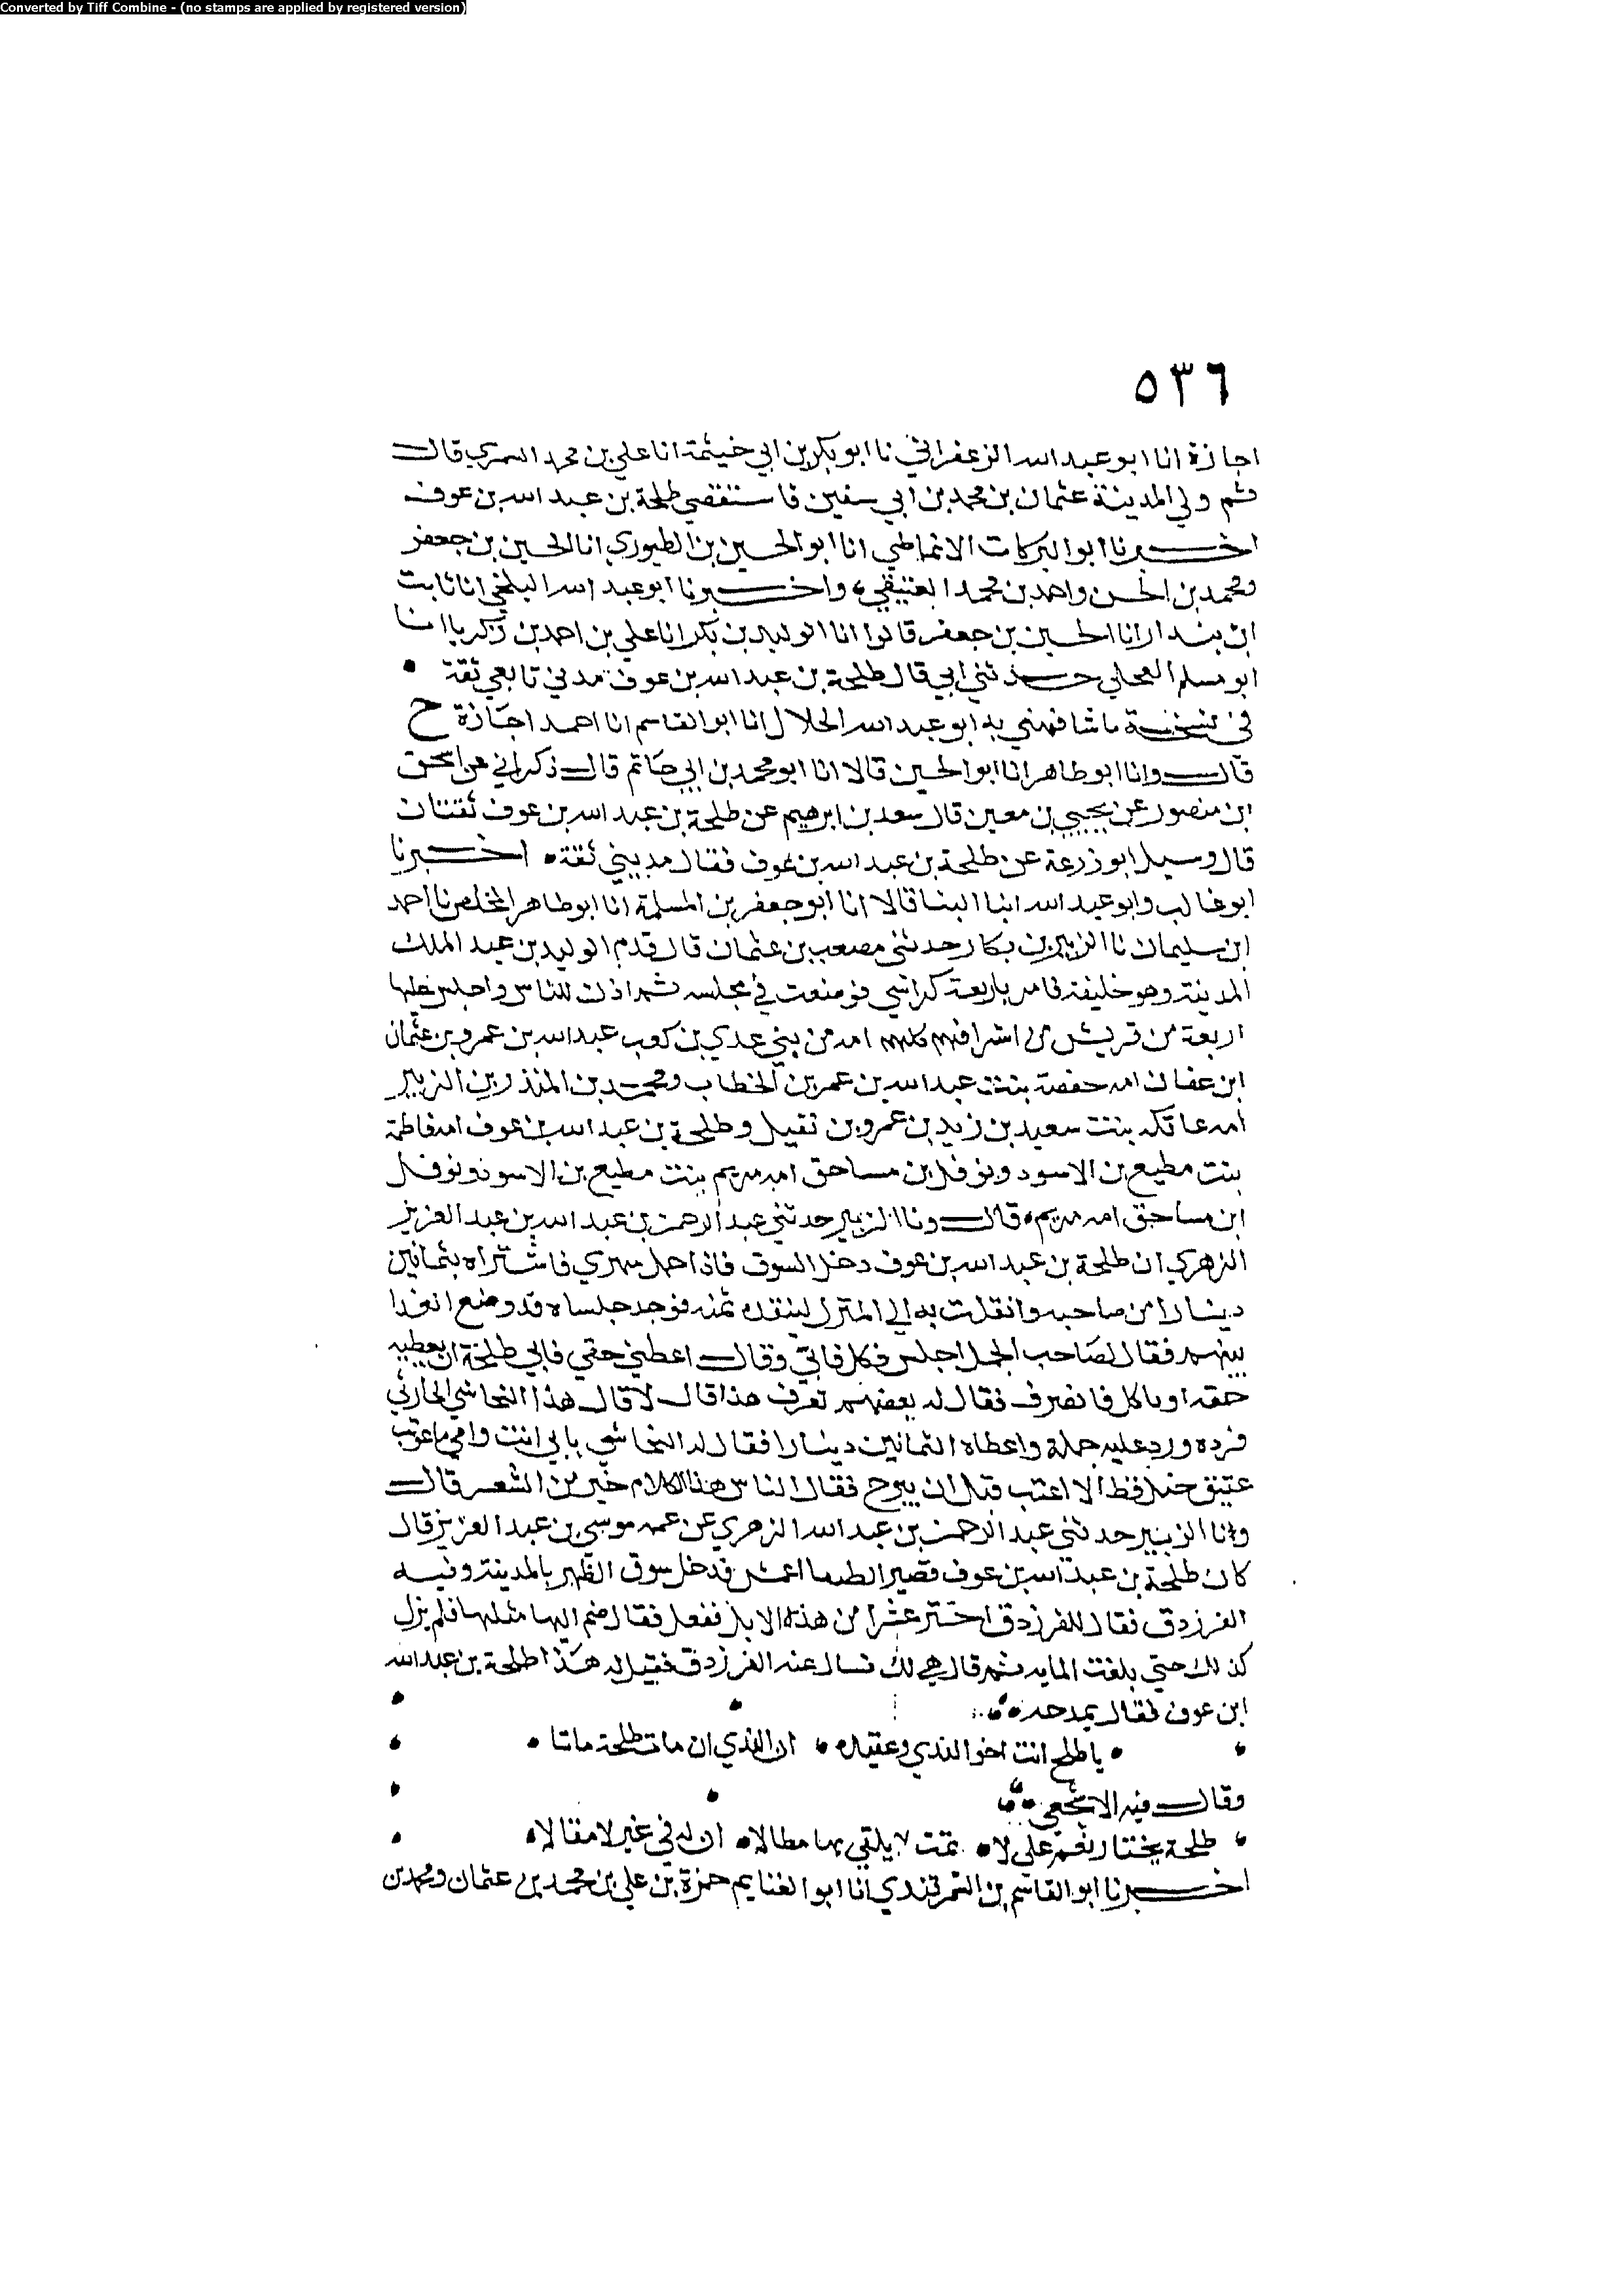 Converted by Tiff Combine - (no stamps are applied by registered version)
٥٣٦
اجازة انا ابو عبد الله الزعفراني نا ابو بكر بن ابي خيثمة انا علي بن محمد العمري قال
ثم ولي المدينة عثمان بن محمد بن ابي سفين فاستقضي طلحة بن عبد الله بن عوف
اخبرنا ابو البركات الانماطي انا ابو الحسين بن الطيوري انا الحسين بن جعفر
ومحمد بن الحسن واحمد بن محمد العتيقي، واخبرنا ابو عبد الله البلخي انا ثابت
ابن بندار انا الحسين بن جعفر قالوا انا الوليد بن بكر انا علي بن احمد بن زكريا انا
ابو مسلم العجلي حدثني ابي قال طلحة بن عبد الله بن عوف مدني تابعي ثقة •
في نسخة ما شافهني به ابو عبد الله الخلال انا ابو القاسم انا احمد اجازة ح
قال وانا ابو طاهر انا ابو الحسين قالا انا ابو محمد بن ابي حاتم قال ذكر ابي عن اسحق
ابن منصور عن يحيي بن معين قال سعد بن ابرهيم عن طلحة بن عبد الله بن عوف ثقتان
قال وسيل ابو زرعة عن طلحة بن عبد الله بن عوف فقال مديني ثقة • اخبرنا
ابو غالب وابو عبد الله ابنا البنا قالا انا ابو جعفر بن المسلمة انا ابو طاهر المخلص نا احمد
ابن سليمان نا الزبير بن بكار حدثني مصعب بن عثمان قال قدم الوليد بن عبد الملك
المدينة وهو خليفة فامر باربعة كراسي فوضعت في مجلسه ثم اذن للناس واجلس عليها
اربعة من قريش من اشرافهم كلهم امه من بني عدي بن كعب عبد الله بن عمرو بن عثمان
ابن عفان امه حفصة بنت عبد الله بن عمر بن الخطاب ومحمد بن المنذر بن الزبير
امه عاتكه بنت سعيد بن زيد بن عمرو بن نفيل وطلحة بن عبد الله بن عوف امه فاطمة
بنت مطيع بن الاسود ونوفل بن مساحق امه مريم بنت مطيع بن الاسود ونوفل
ابن مساحق امه مريم • قال ونا الزبير حدثني عبد الرحمن بن عبد الله بن عبد العزيز
الزهري ان طلحة بن عبد الله بن عوف دخل السوق فاذا جمل مهري فاشتراه بثمانين
دينارا من صاحبه وانقلت به الي المنزل لينقده ثمنه فوجد جلساه قد وضع الغدا
بينهم فقال لصاحب الجمل اجلس فكل فابي وقال اعطني حقي فابي طلحة ان يعطيه
حقه او ياكل فانصرف فقال له بعضهم تعرف هذا قال لا قال هذا النجاشي الحارثي
فرده ورد عليه جمله واعطاه الثمانين دينارا فقال له النجاشي بابي انت وامي ما عوتب
عتيق خيل قط الا اعتب قبل ان يبرح فقال الناس هذا الكلام خير من الشعر قال
ونا الزبير حدثني عبد الرحمن بن عبد الله الزهري عن عمه موسي بن عبد العزيز قال
كان طلحة بن عبد الله بن عوف قصيرا اعمش فدخل سوق الظهر بالمدينة وفيه
الفرزدق فقال للفرزدق اختر عشرا من هذه الابل ففعل فقال ضم اليها مثلها فلم يزل
كذلك حتي بلغت المايه ثم قال هي لك فسال عنه الفرزدق فقيل له هذا طلحة بن عبد الله
ابن عوف فقال يمدحه
يا طلح انت اخو الندي وعقيده • ان الندي ان مات طلحة ماتا •
وقال فيه الاشجعي
طلحة يختار نعم علي لا • تمت لا يلتقي بها مطالا • ان له في غير لا مقالا •
اخبرنا ابو القاسم بن السمرقندي انا ابو الغنايم حمزة بن علي بن محمد بن عثمان ومحمد بن